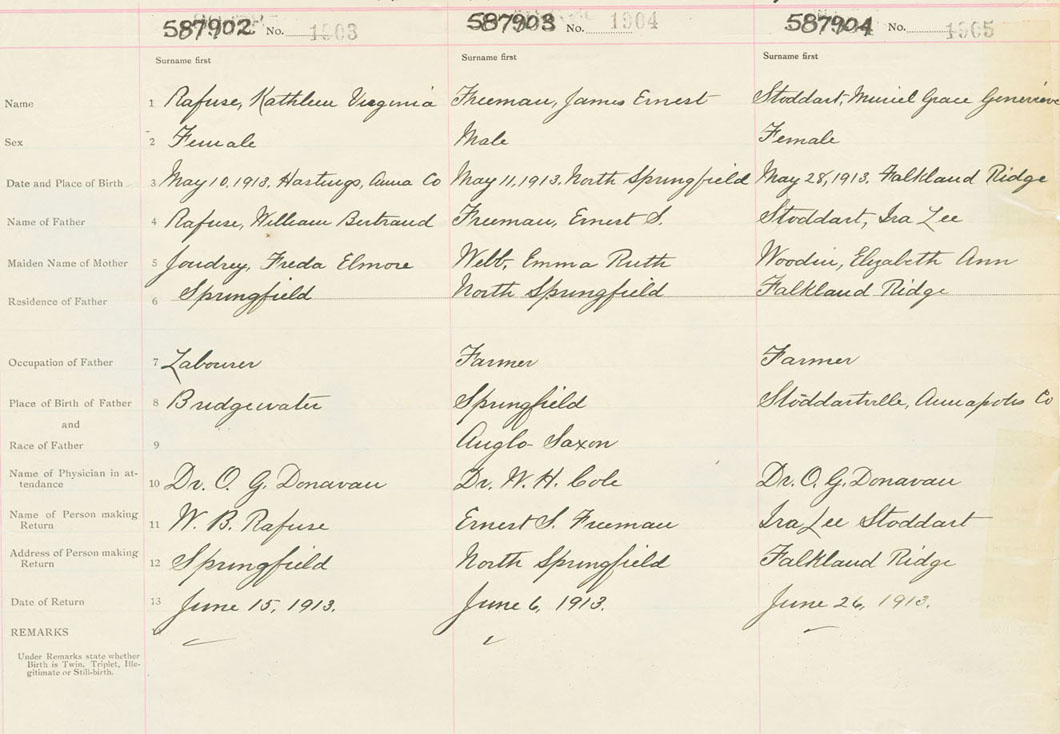 587902 No. 1903 587903 No. 1904 587904 No. 1905
Surname first Surname first Surname first
Name 1 Rafuse, Kathleen Virginia Freeman, James Ernest Stoddart, Muriel Grace Genevieve
Sex 2 Female Male Female
Date and Place of Birth 3 May 10, 1913, Hastings, Anna Co May 11, 1913. North Springfield May 28, 1913. Falkland Ridge
Name of Father 4 Rafuse, William Bertrand Freeman, Ernest S. Stoddart, Ira Lee
Maiden Name of Mother 5 Joudrey, Freda Elmore Webb, Emma Ruth Woodin, Elizabeth Ann
Residence of Father 6 Springfield North Springfield Falkland Ridge
Occupation of Father 7 Labourer Farmer Farmer
Place of Birth of Father 8 Bridgewater Springfield Stoddartville, Annapolis Co
and
Race of Father 9 Anglo-Saxon
Name of Physician in at-
tendance 10 Dr. O. G. Donavan Dr. W. H. Cole Dr. O. G. Donavan
Name of Person making
Return 11 W. B. Rafuse Ernest S. Freeman Ira Lee Stoddart
Address of Person making
Return 12 Springfield North Springfield Falkland Ridge
Date of Return 13 June 15, 1913. June 6, 1913. June 26, 1913.
REMARKS
Under Remarks state whether
Birth is Twin, Triplet, Ille-
gitimate or Still-birth.